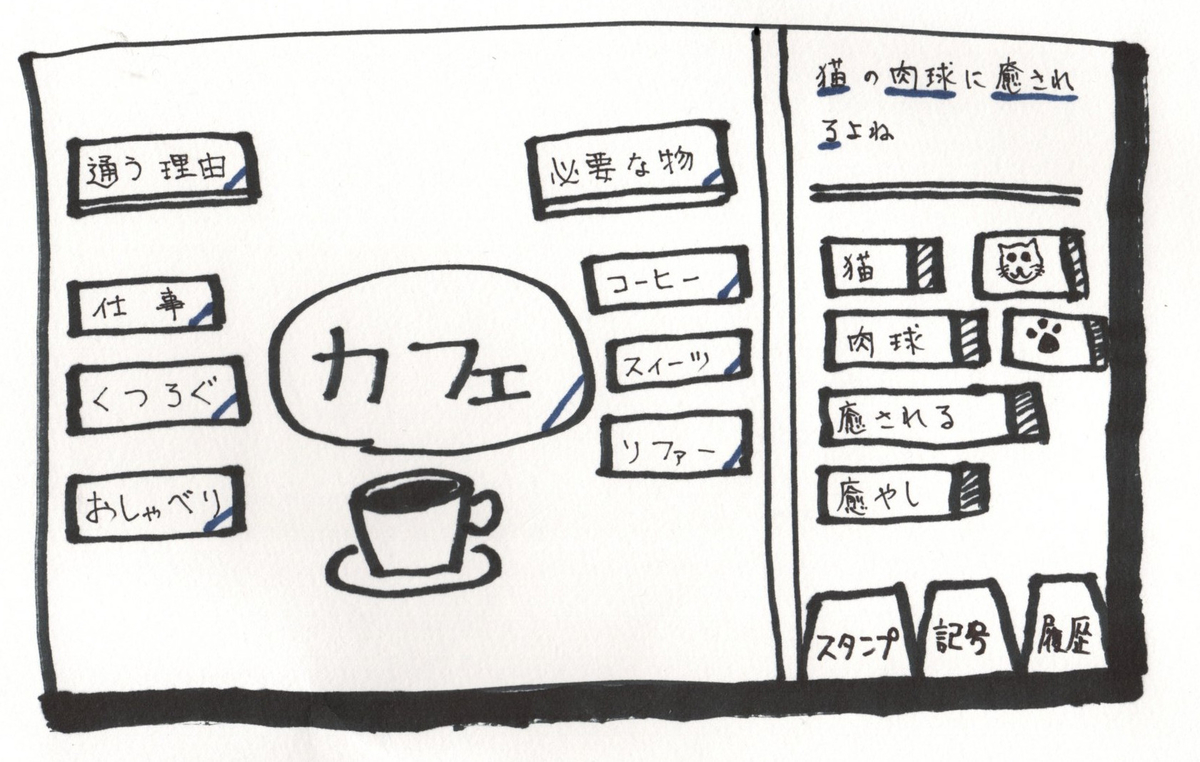 通う理由
仕事
くつろぐ
おしゃべり
カフェ
必要な物
コーヒー
スィーツ
ソファー
猫の肉球に癒され
るよね
猫
肉球
癒される
癒やし
スタンプ
記号
履歴